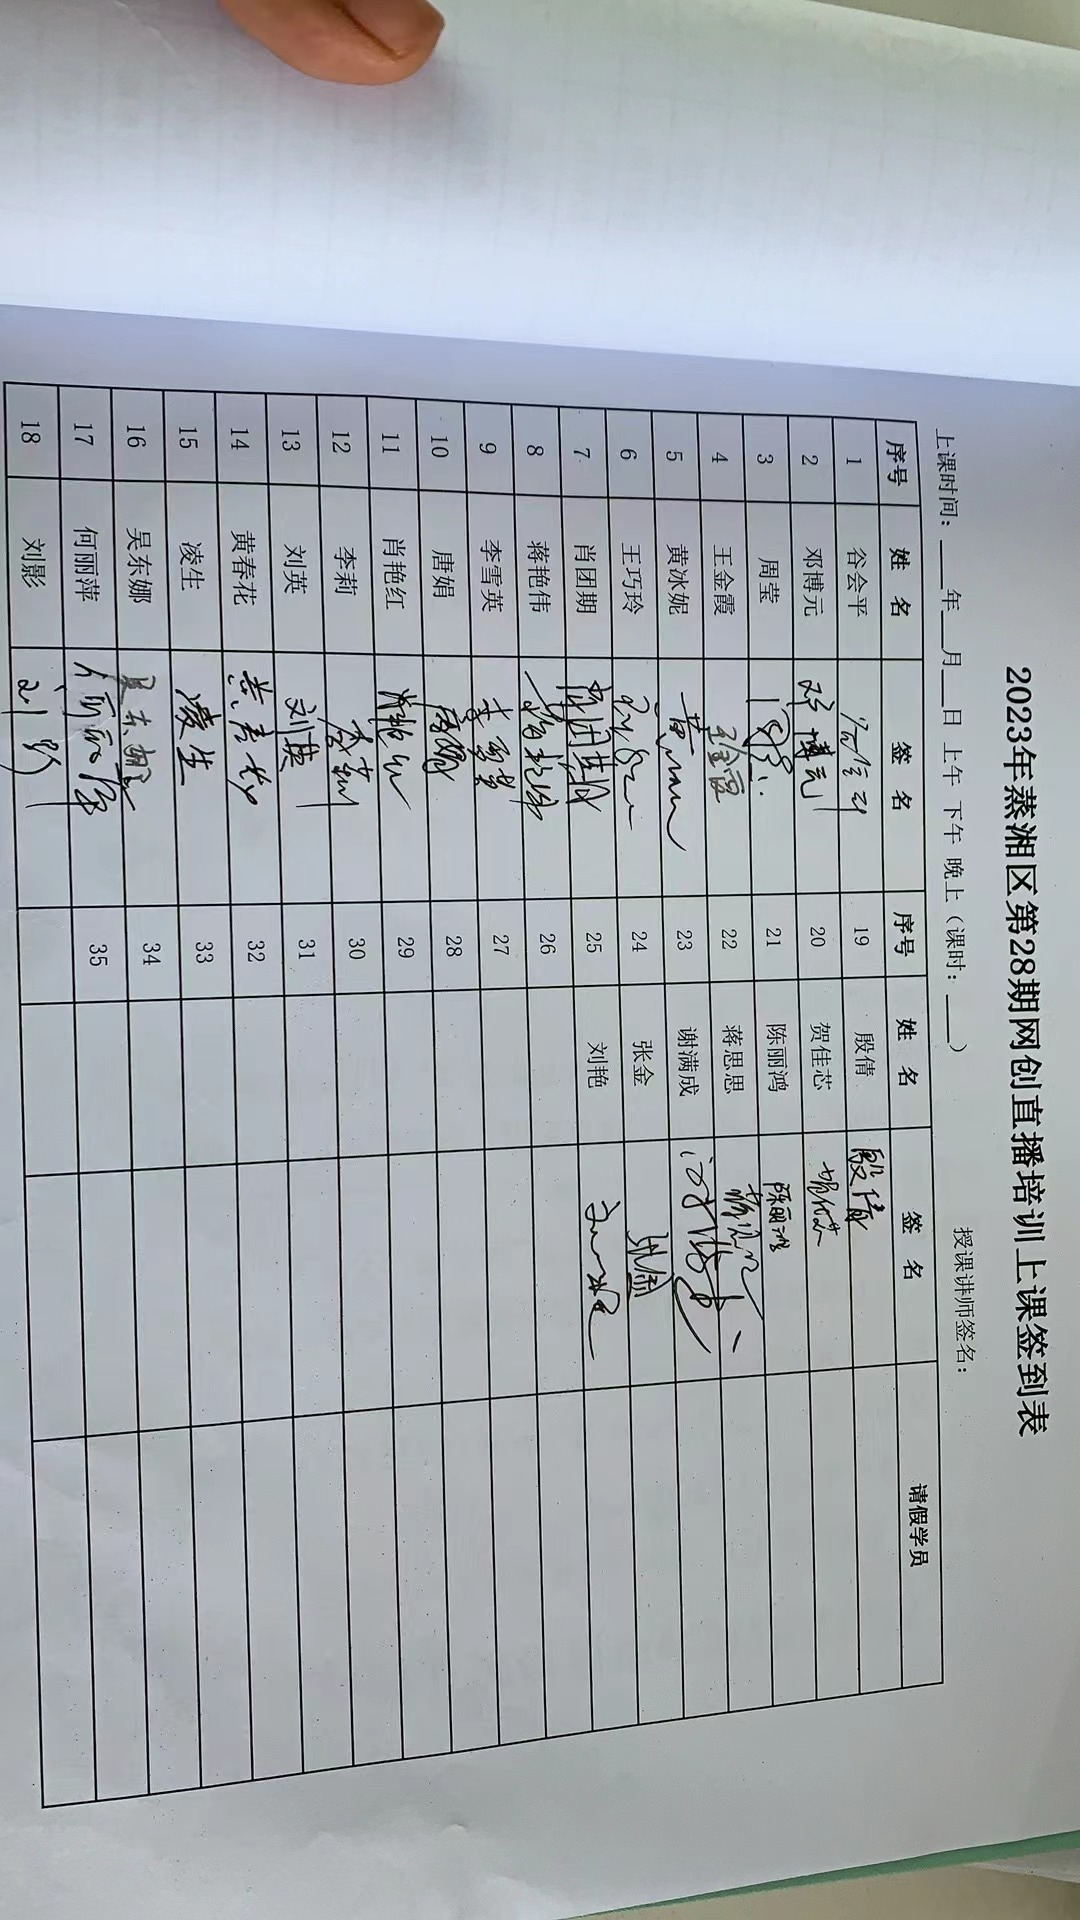 2023年蒸湘区第28期网创直播培训上课签到表
上课时间：___年___月___日 上午 下午 晚上（课时：___） 授课讲师签名：
序号 姓 名 签 名 序号 姓 名 签 名 请假学员
1 谷会平 19 殷倩 殷倩
2 邓博元 邓博元 20 贺佳芯
3 周莹 21 陈丽鸿 陈丽鸿
4 王金霞 王金霞 22 蒋思思
5 黄冰妮 23 谢满成
6 王巧玲 24 张金 张金
7 肖团期 25 刘艳
8 蒋艳伟 蒋艳伟 26
9 李雪英 李雪英 27
10 唐娟 唐娟 28
11 肖艳红 29
12 李莉 李莉 30
13 刘英 刘英 31
14 黄春花 黄春花 32
15 凌生 凌生 33
16 吴东娜 吴东娜 34
17 何丽萍 何丽萍 35
18 刘影 刘影